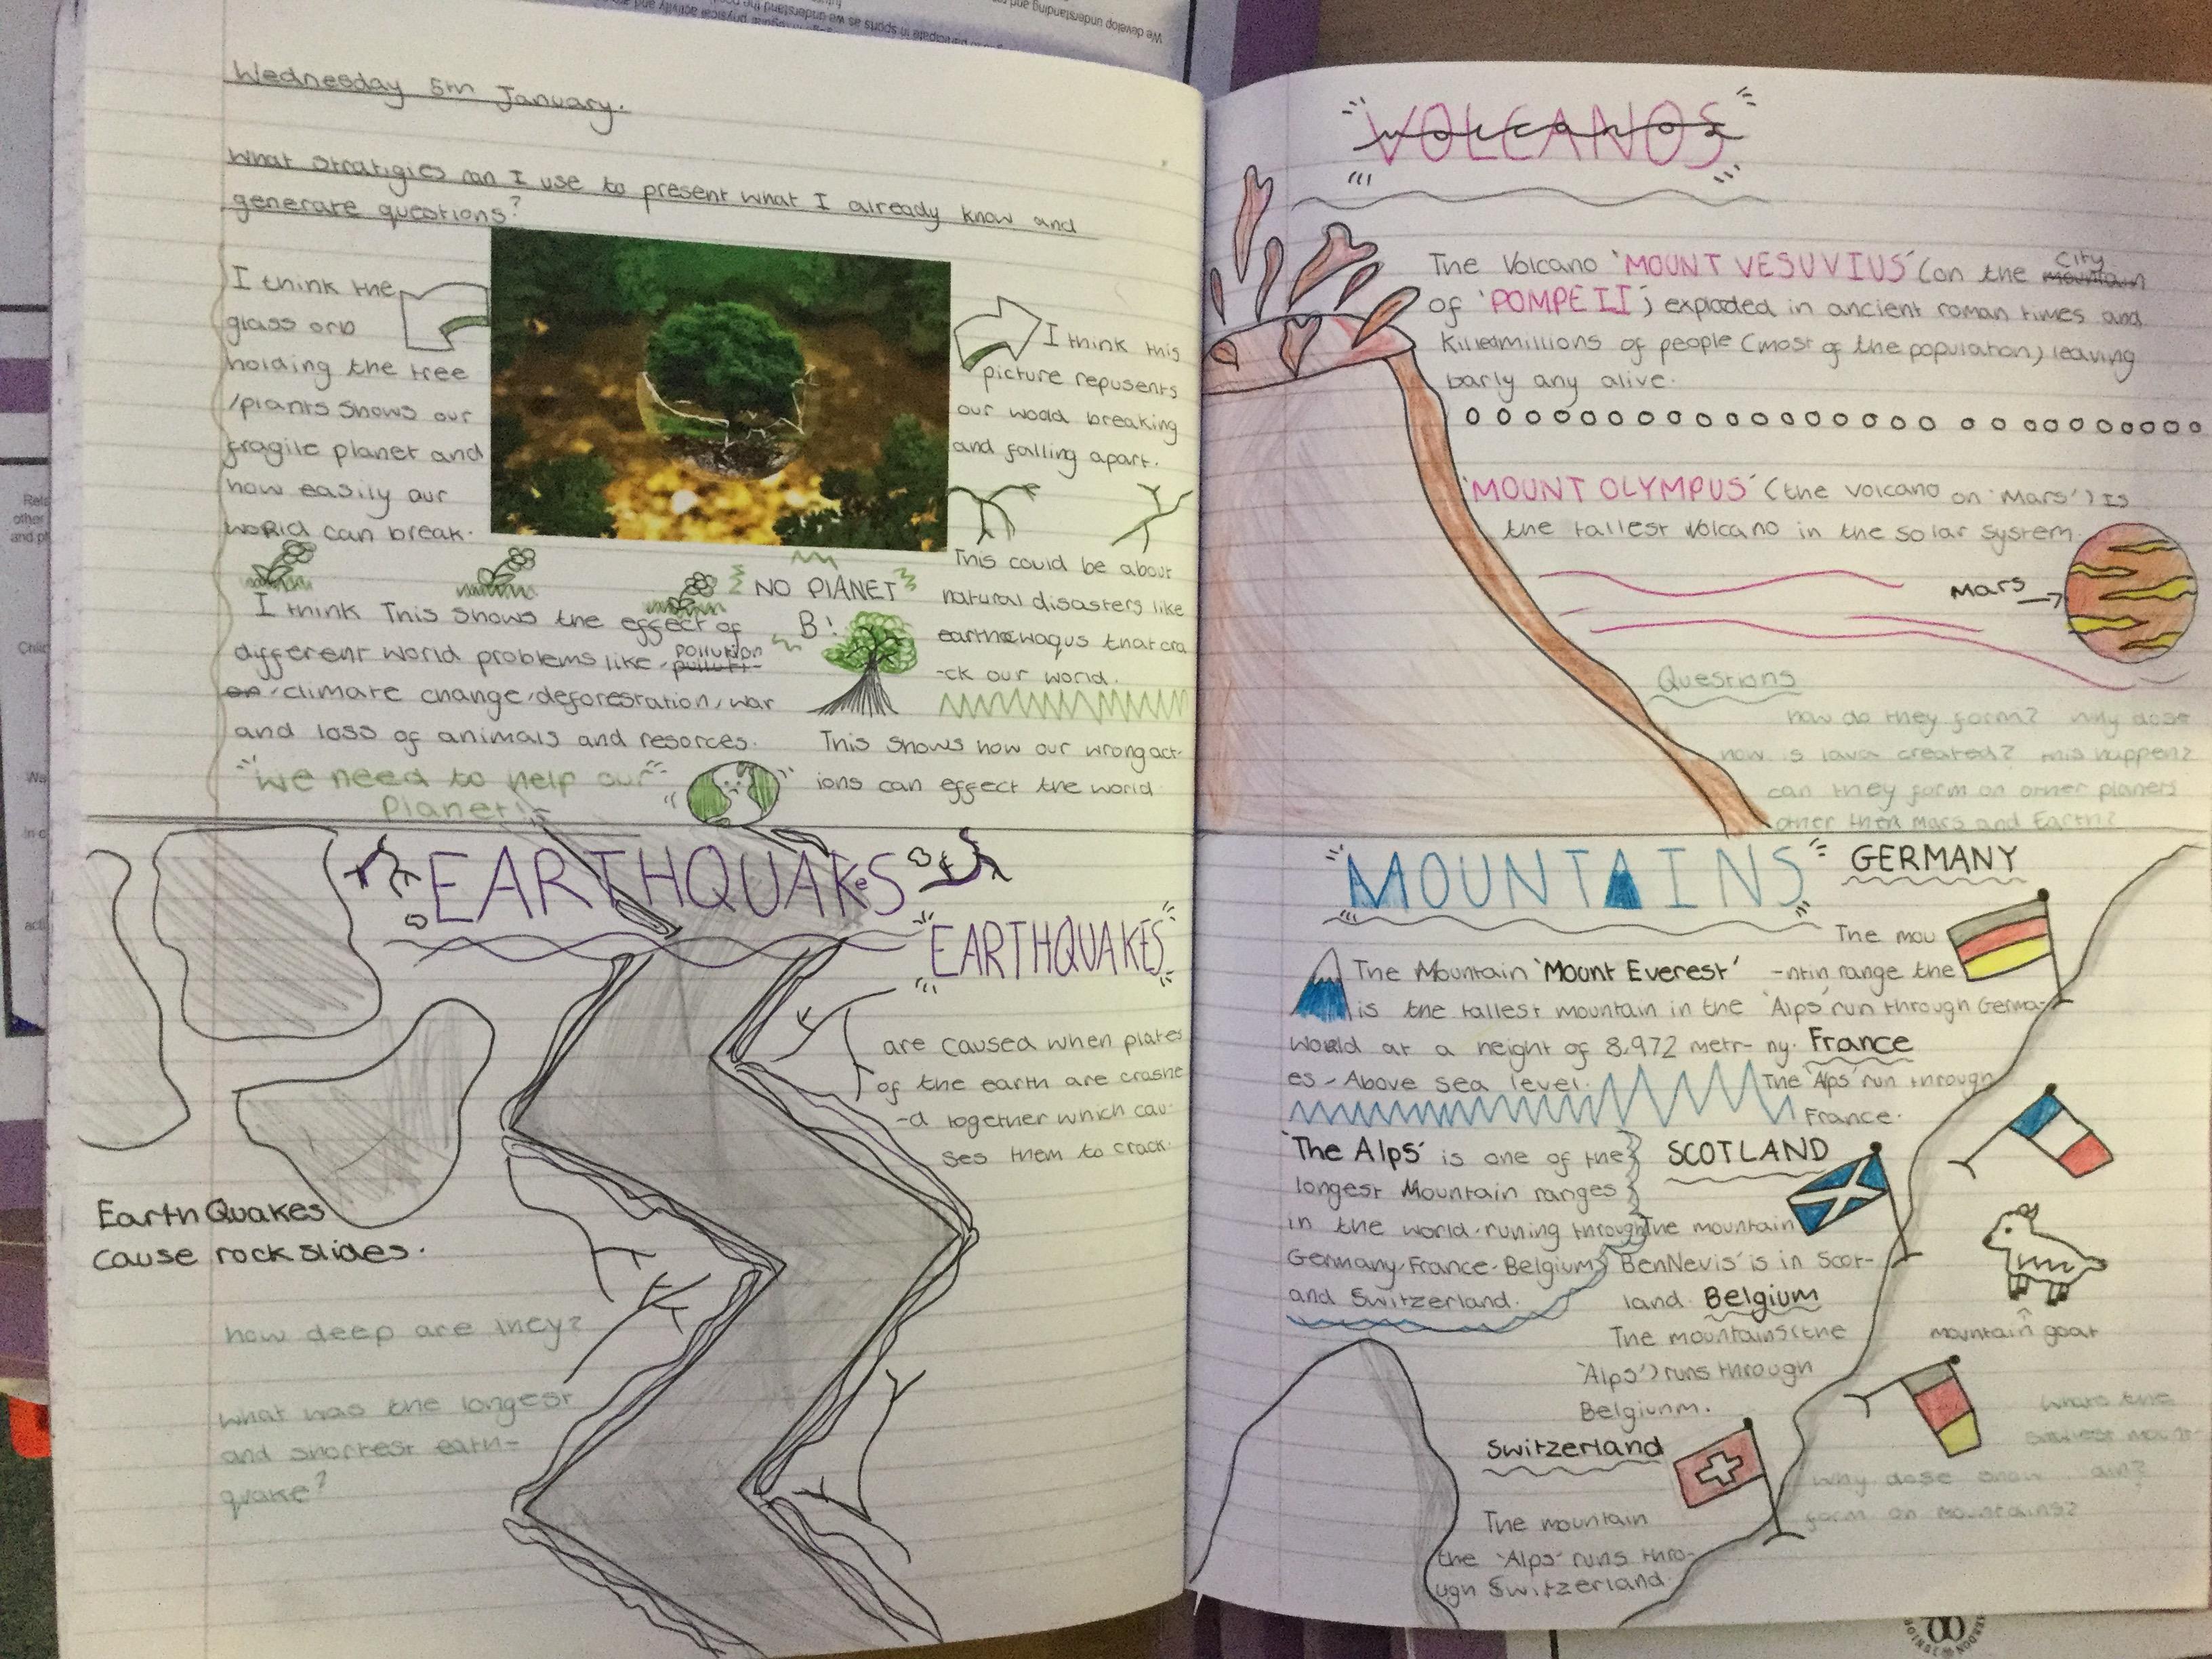 We develop understanding and
participate in sports as we understand the
regular physical activity and
Wednesday 5th January.
What stratigies can I use to present what I already know and
generate questions?
I think the
glass orb
holding the tree
/plants shows our
fragile planet and
how easily our
world can break.
I think this
picture repusents
our woald breaking
and falling apart.
This could be about
natural disasters like
earthcwaqus that cra
-ck our world.
NO PlANET
B!
I think This shows the effect of
different world problems like pollution
climate change, deforestration, war
and loss of animals and resorces.
This shows how our wrong act-
ions can effect the world
"we need to help our
Planet!"
EARTHQUAKeS
EARTHQUAKES
are caused when plates
of the earth are crashe
-d together which cau-
ses them to crack.
Earth Quakes
cause rock slides.
how deep are they?
what was the longest
and shortest earth-
quake?
VOLCANOS
The Volcano 'MOUNT VESUVIUS' (on the city
of 'POMPEII') exploded in ancient roman times and
killed millions of people (most of the population) leaving
barly any alive.
'MOUNT OLYMPUS' (the volcano on 'Mars') Is
the tallest volcano in the solar system.
Mars
Questions
how do they form? why dose
how is lava created? this happen?
can they form on other planets
other then Mars and Earth?
MOUNTAINS
The Mountain 'Mount Everest'
is the tallest mountain in the
world at a height of 8,972 metr-
es - Above sea level.
'The Alps' is one of the
longest Mountain ranges
in the world. runing through
Germany, France, Belgium
and Switzerland.
GERMANY
The mou
-ntin range the
'Alps' run through Germa-
ny.
France
The 'Alps' run through
France.
SCOTLAND
The mountain
'BenNevis' is in Scot-
land.
Belgium
The mountains (the
'Alps') runs through
Belgiunm.
Switzerland
The mountain
the 'Alps' runs thro-
ugh Switzerland.
mountain goat
whats the
smallest mount-
ain?
why dose snow
form on mountains?